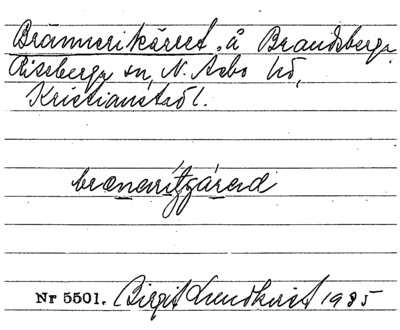 Brännerikärret, å Brandsberga
Riseberga sn, N. Åsbo hd,
Kristianstad l.
brænəritʒárəd
Nr 5501. Birgit Lundkvist 1935